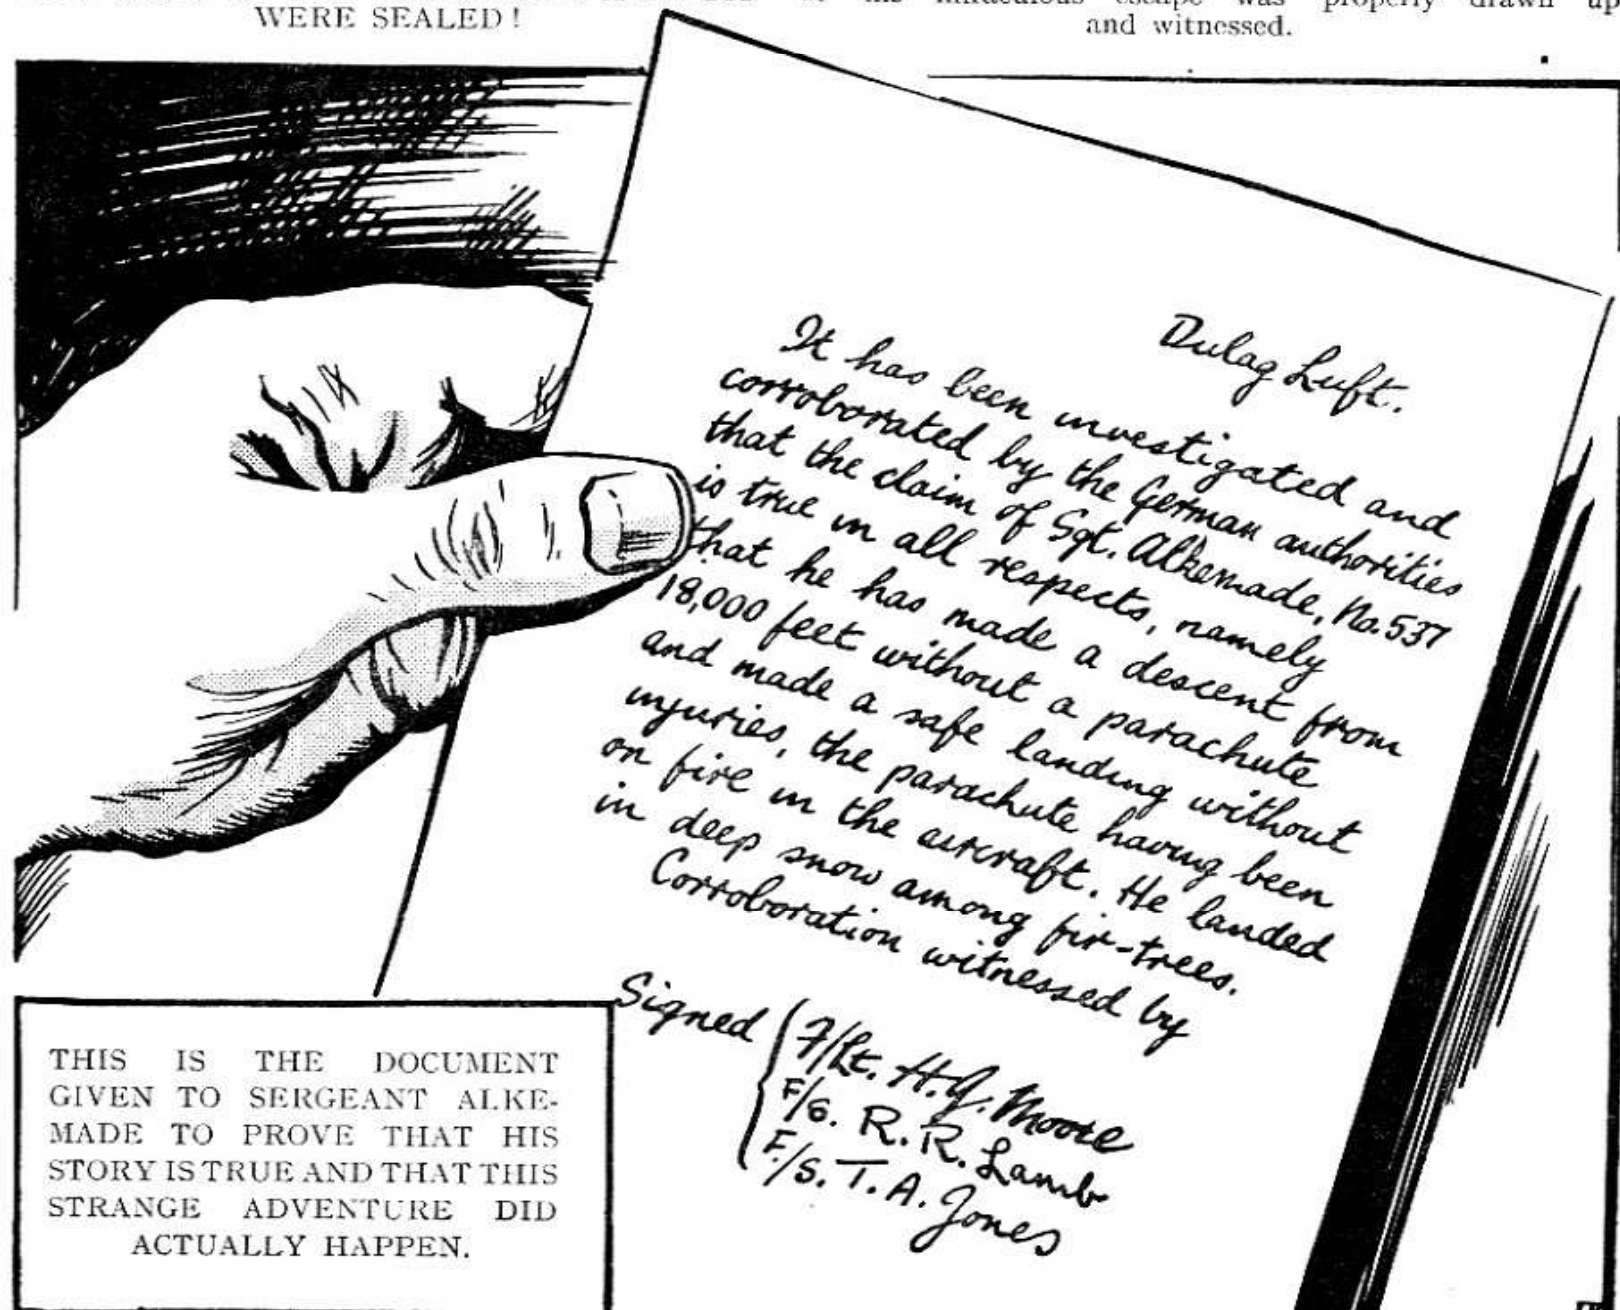 WERE SEALED!
his miraculous escape was properly drawn up
and witnessed.
Dulag Luft.
It has been investigated and
corroborated by the German authorities
that the claim of Sgt. Alkemade, No. 537
is true in all respects, namely
that he has made a descent from
18,000 feet without a parachute
and made a safe landing without
injuries, the parachute having been
on fire in the aircraft. He landed
in deep snow among fir-trees.
Corroboration witnessed by
Signed
F/Lt. H.J. Moore
F/S. R. R. Lamb
F./S. T. A. Jones
THIS IS THE DOCUMENT
GIVEN TO SERGEANT ALKE-
MADE TO PROVE THAT HIS
STORY IS TRUE AND THAT THIS
STRANGE ADVENTURE DID
ACTUALLY HAPPEN.